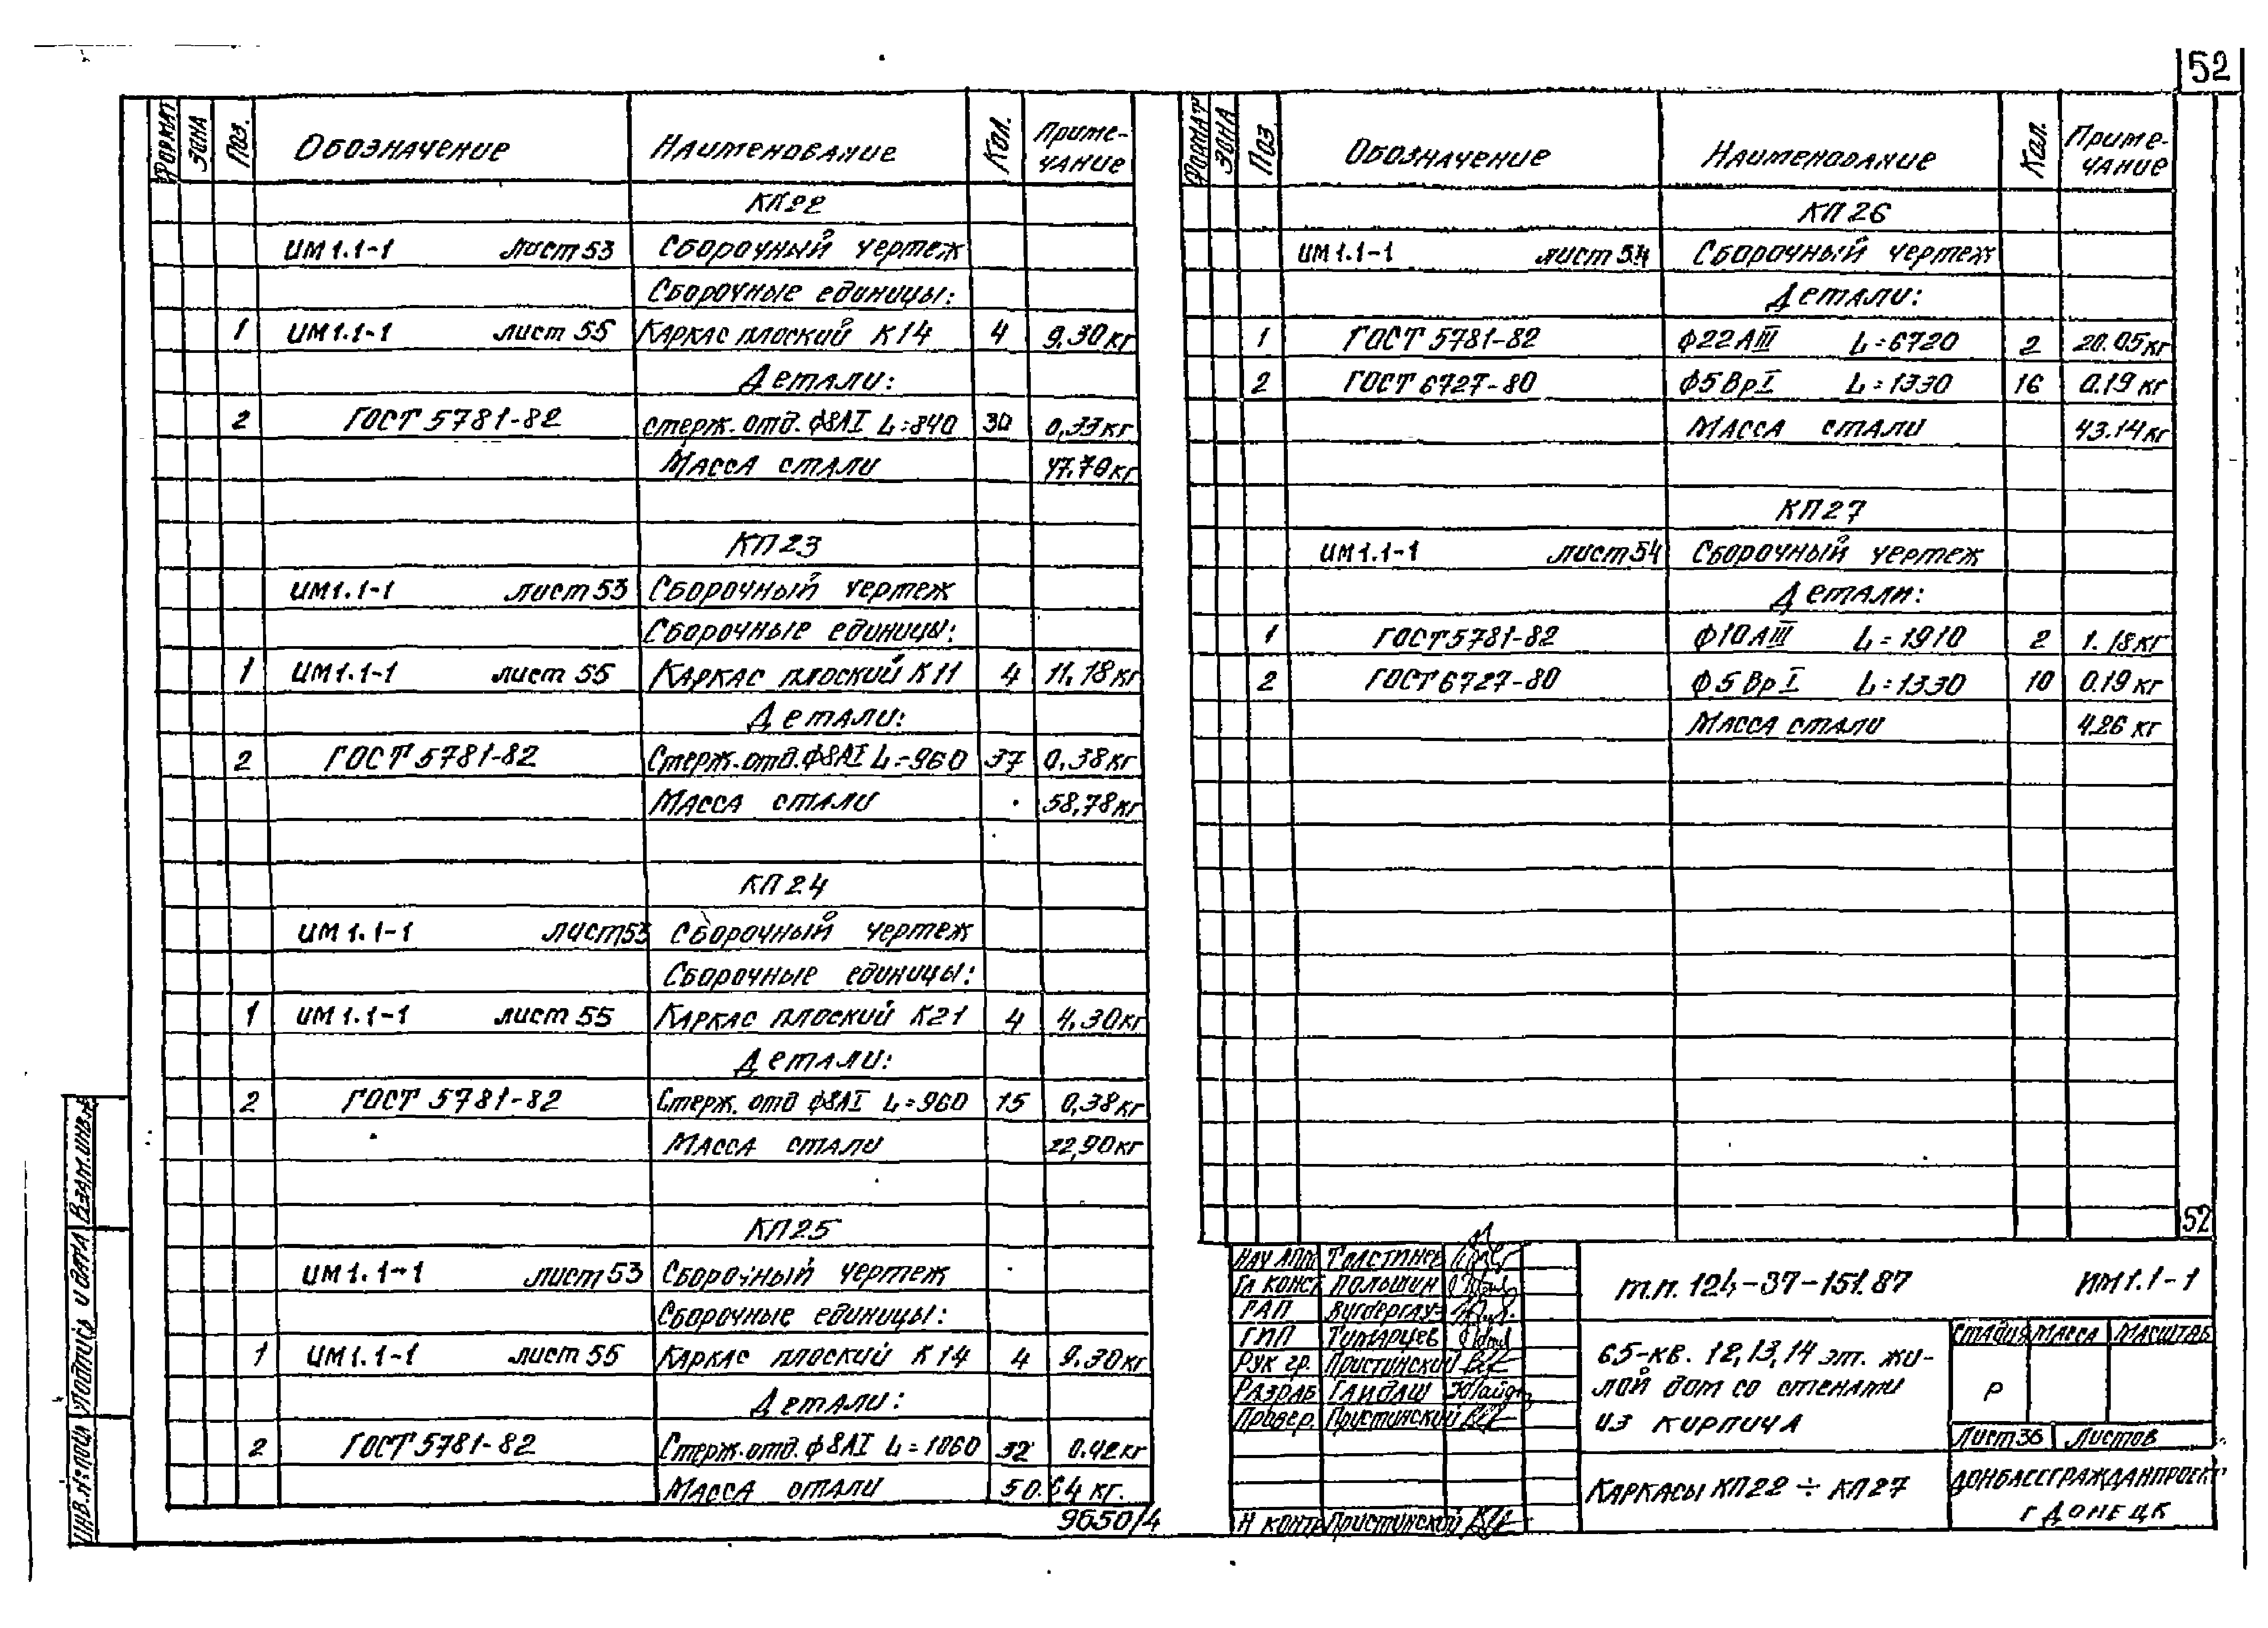 52
Формат Зона Поз. Обозначение Наименование Кол. Примечание
КП22
ИМ1.1-1 лист 53 Сборочный чертеж
Сборочные единицы:
1 ИМ1.1-1 лист 55 Каркас плоский К14 4 9,30кг
Детали:
2 ГОСТ 5781-82 стерж. отд. ф8АI L=840 30 0,33кг
Масса стали 47.70кг
КП23
ИМ1.1-1 лист 53 Сборочный чертеж
Сборочные единицы:
1 ИМ1.1-1 лист 55 Каркас плоский К11 4 11.18кг
Детали:
2 ГОСТ 5781-82 Стерж. отд. ф8АI L=960 37 0,38кг
Масса стали 58,78кг
КП24
ИМ1.1-1 лист 53 Сборочный чертеж
Сборочные единицы:
1 ИМ1.1-1 лист 55 Каркас плоский К21 4 4,30кг
Детали:
2 ГОСТ 5781-82 Стерж. отд ф8АI L=960 15 0,38кг
Масса стали 22,90кг
КП25
ИМ1.1-1 лист 53 Сборочный чертеж
Сборочные единицы:
1 ИМ1.1-1 лист 55 Каркас плоский К14 4 9.30кг
Детали:
2 ГОСТ 5781-82 Стерж. отд. ф8АI L=1060 32 0.42кг
Масса стали 50.64 кг.
9650/4
Формат Зона Поз Обозначение Наименование Кол. Примечание
КП26
ИМ1.1-1 лист 54 Сборочный чертеж
Детали:
1 ГОСТ 5781-82 ф22АIII L=6720 2 20.05кг
2 ГОСТ 6727-80 ф5ВрI L=1330 16 0.19 кг
Масса стали 43.14кг
КП27
ИМ1.1-1 лист 54 Сборочный чертеж
Детали:
1 ГОСТ 5781-82 ф10АIII L=1910 2 1.18кг
2 ГОСТ 6727-80 ф5ВрI L=1330 10 0.19 кг
Масса стали 4.26 кг
52
Нач АПО Толстичев
Гл конст Польшин
ГАП
ГИП Титарцев
Рук гр. Пристинский
Разраб Гайдаш
Провер. Пристинский
Н контр Пристинский
т.п. 124-37-151.87 ИМ1.1-1
65-кв. 12,13,14 эт. жи-
лой дом со стенами
из кирпича
Стадия Масса Масштаб
Р
Лист 36 Листов
Каркасы КП22 ÷ КП27
ДОНБАССГРАЖДАНПРОЕКТ
г ДОНЕЦК
Взам.инв.№
Подпись и дата
Инв.№ подл